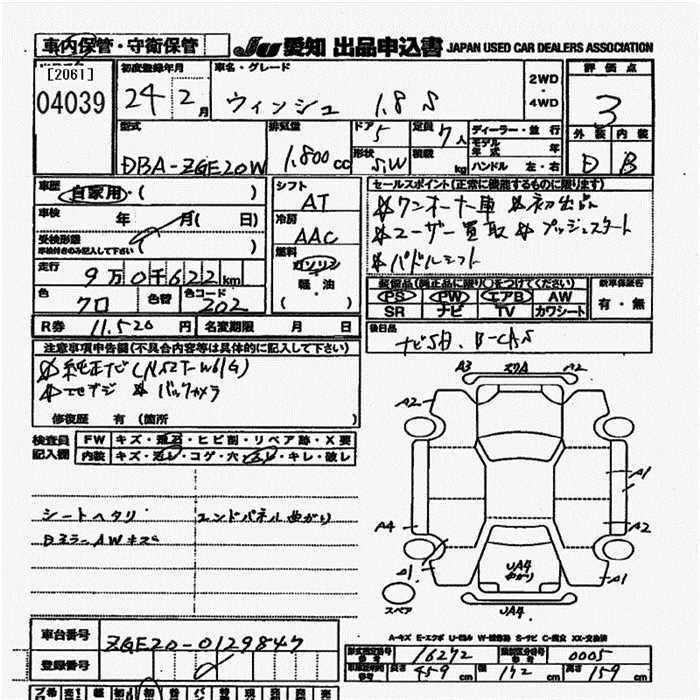 車内保管・守衛保管 JU 愛知 出品申込書 JAPAN USED CAR DEALERS ASSOCIATION
[2061] 初度登録年月 車名・グレード 2WD ・ 4WD 評価点
04039 24 2月 ウィッシュ 1.8 S 3
型式 排気量 ドア 5 定員 7人 ディーラー・並行 外装 内装
モデル年式 年
DBA-ZGE20W 1.800cc 形状 S.W 積載 kg ハンドル 左・右 D B
車歴 自家用・( ) シフト AT セールスポイント(正常に機能するものに限ります)
車検 年 月( 日) 冷房 AAC ワンオーナー車 初出品
受検形態 車検付きのみ記入して下さい ( ) ユーザー買取 プッシュスタート
走行 9万0千622km 燃料 ガソリン パドルシフト
軽・油
色 クロ 色替 色コード 202 ( )
装備品(純正品に限り○をつけてください) 新車保証書
PS PW エアB AW 有・無
SR ナビ TV カワシート
R券 11.520円 名変期限 月 日 後日品
ナビSD、B-CAS
注意事項申告欄(不具合内容等は具体的に記入して下さい)
純正ナビ(NSZT-W61G)
バックカメラ
修復歴 有(箇所 )
検査員記入欄 FW キズ・飛石・ヒビ割・リペア跡・X要
内装 キズ・汚レ・コゲ・穴・スレ・キレ・破レ
シートヘタリ エンドパネル曲がり
AWキズ
A3 A2
A2
A1
A4 A2
A1 A1
UA4
曲がり
スペア UA4
A-キズ E-エクボ U-凹ミ W-補修跡 S-サビ C-腐食 XX-交換済
車台番号 ZGE20-0129847
登録番号
型式指定番号 参考 16272 類別区分番号 参考 0005
長さ 459cm 幅 172cm 高さ 159cm